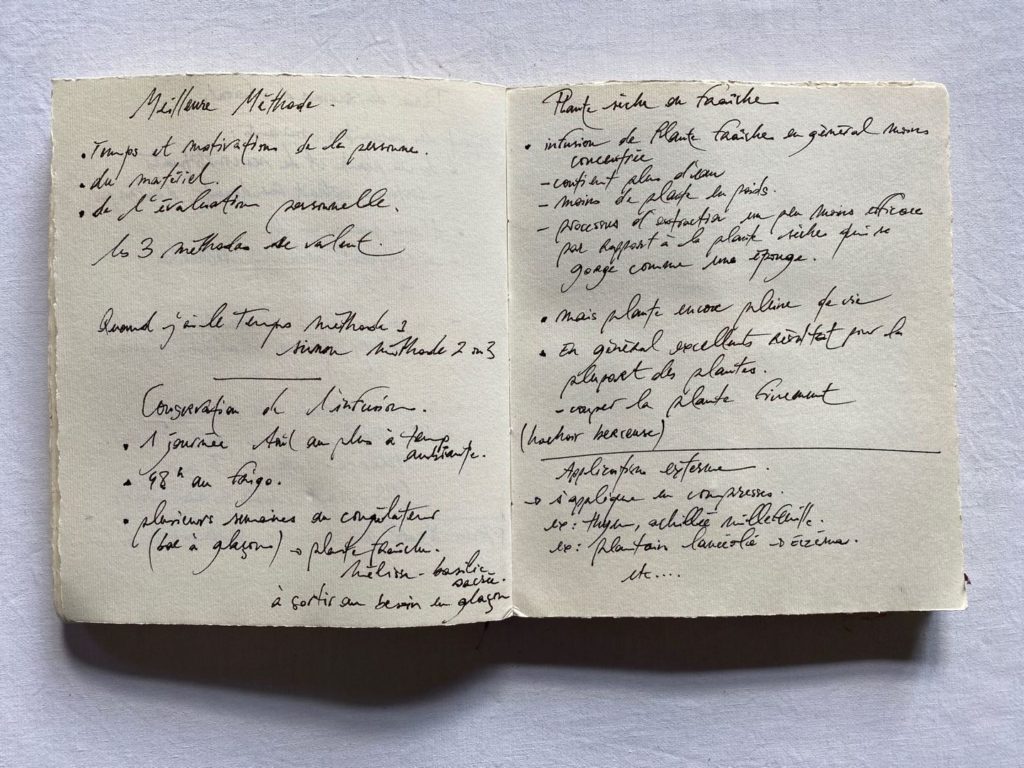 Meilleure Méthode.
• Temps et motivations de la personne.
• du matériel.
• de l'évaluation personnelle.
les 3 méthodes se valent.
Quand j'ai le Temps méthode 1
sinon méthode 2 ou 3
Conservation de l'infusion.
• 1 journée au plus à temp
ambiante.
• 48h au frigo.
• plusieurs semaines au congélateur
(bac à glaçon) → plante fraîche.
Mélisse - basilic
sacrée.
à sortir au besoin en glaçon
Plante sèche ou fraîche
• infusion de Plante fraîche en général moins
concentrée
- contient plus d'eau
- moins de plante en poids.
- processus d'extraction un peu moins efficace
par rapport à la plante sèche qui se
gorge comme une éponge.
• mais plante encore pleine de vie
• En général excellents résultat pour la
plupart des plantes.
- couper la plante finement
(hachoir berceuse)
Application externe.
→ s'applique en compresses.
ex: thym, achillée millefeuille.
ex: plantain lancéolé → eczéma.
etc....